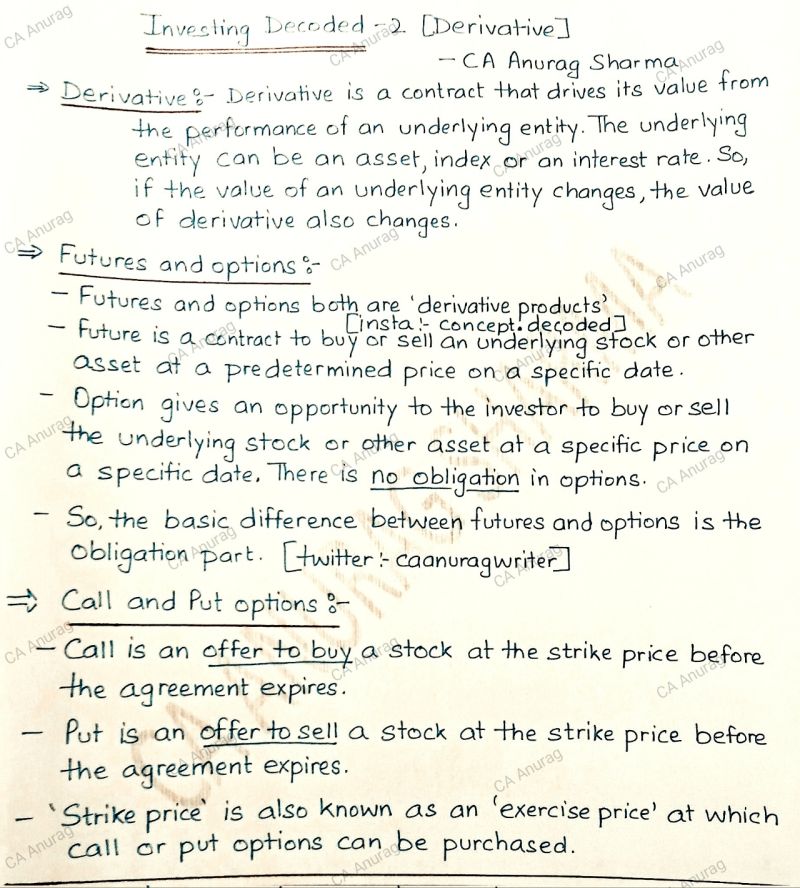 Investing Decoded -2 [Derivative]
- CA Anurag Sharma
⇒ Derivative :- Derivative is a contract that drives its value from
the performance of an underlying entity. The underlying
entity can be an asset, index or an interest rate. So,
if the value of an underlying entity changes, the value
of derivative also changes.
⇒ Futures and options :-
- Futures and options both are 'derivative products'
[insta :- concept.decoded]
- Future is a contract to buy or sell an underlying stock or other
asset at a predetermined price on a specific date.
- Option gives an opportunity to the investor to buy or sell
the underlying stock or other asset at a specific price on
a specific date. There is no obligation in options.
- So, the basic difference between futures and options is the
obligation part. [twitter :- caanuragwriter]
⇒ Call and Put options :-
- Call is an offer to buy a stock at the strike price before
the agreement expires.
- Put is an offer to sell a stock at the strike price before
the agreement expires.
- 'Strike price' is also known as an 'exercise price' at which
call or put options can be purchased.
CA ANURAG SHARMA
CA Anurag